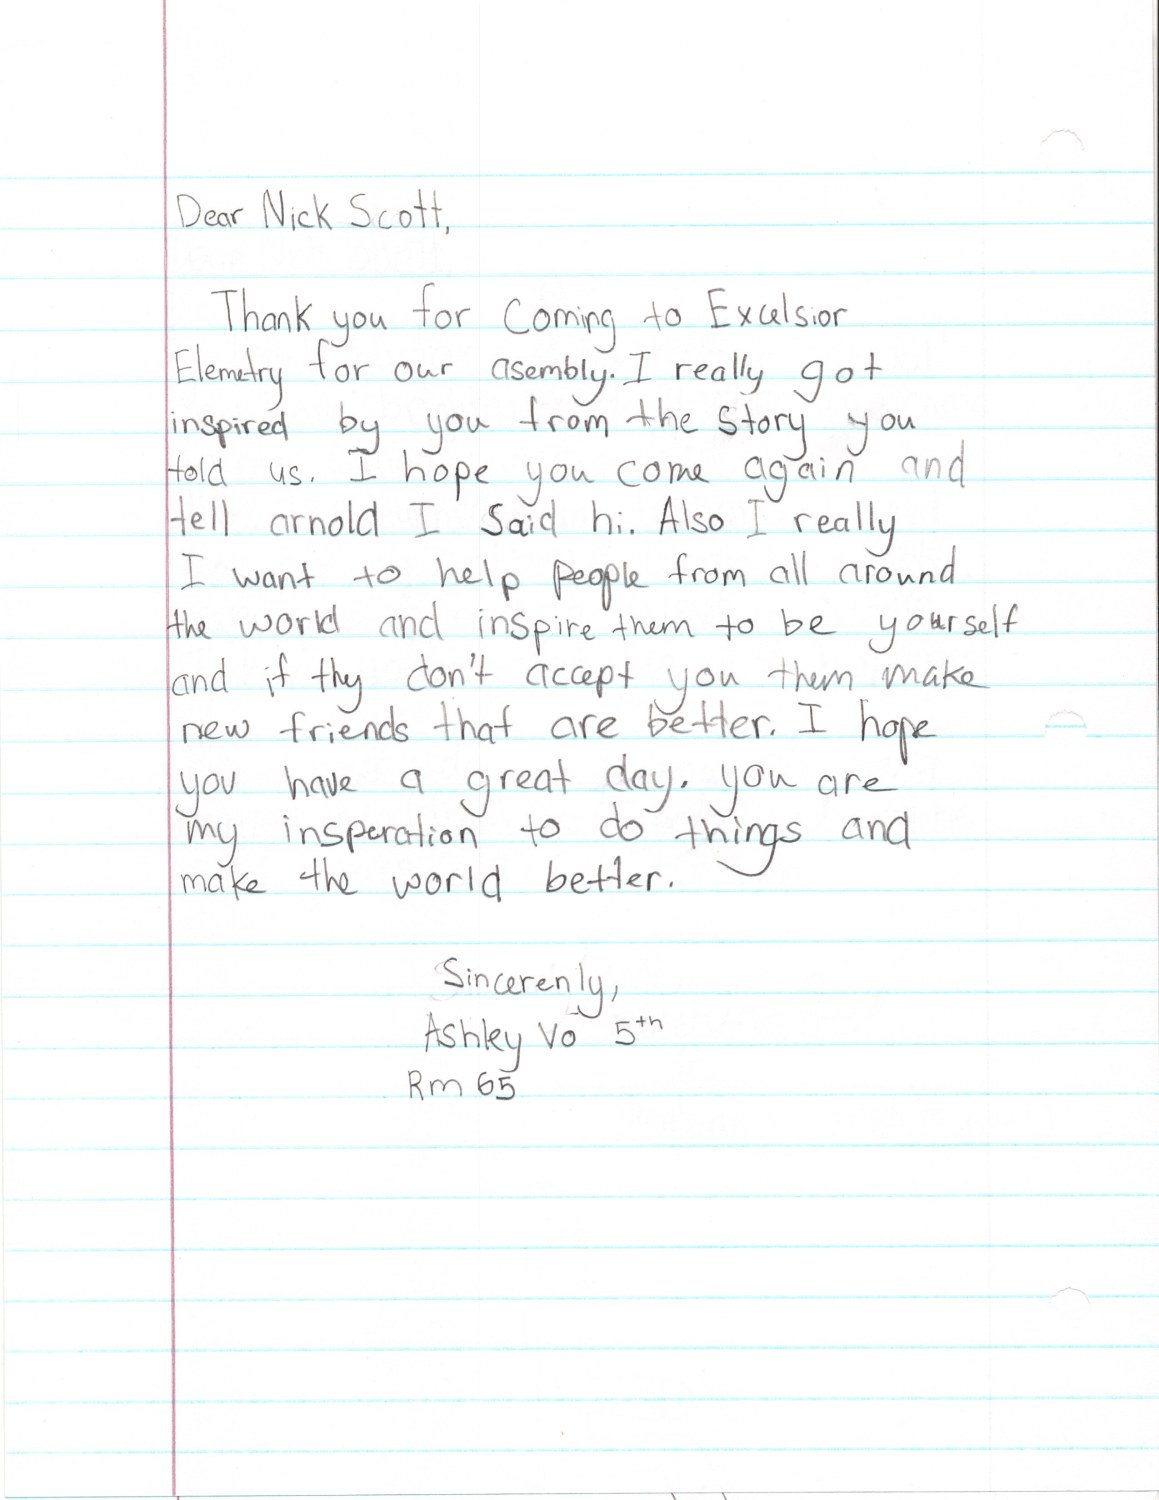 Dear Nick Scott,
Thank you for Coming to Excelsior
Elemetry for our asembly. I really got
inspired by you from the Story you
told us. I hope you come again and
tell arnold I Said hi. Also I really
I want to help people from all around
the world and inspire them to be yourself
and if thy don't accept you them make
new friends that are better. I hope
you have a great day. you are
my insperation to do things and
make the world better.
Sincerenly,
Ashley Vo 5th
Rm 65